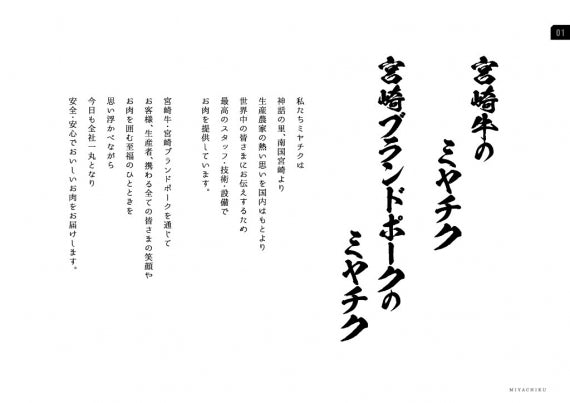 01
宮崎牛の
ミヤチク
宮崎ブランドポークの
ミヤチク
私たちミヤチクは
神話の里、南国宮崎より
生産農家の熱い思いを国内はもとより
世界中の皆さまにお伝えするため
最高のスタッフ・技術・設備で
お肉を提供しています。
宮崎牛・宮崎ブランドポークを通じて
お客様、生産者、携わる全ての皆さまの笑顔や
お肉を囲む至福のひとときを
思い浮かべながら
今日も全社一丸となり
安全・安心でおいしいお肉をお届けします。
MIYACHIKU